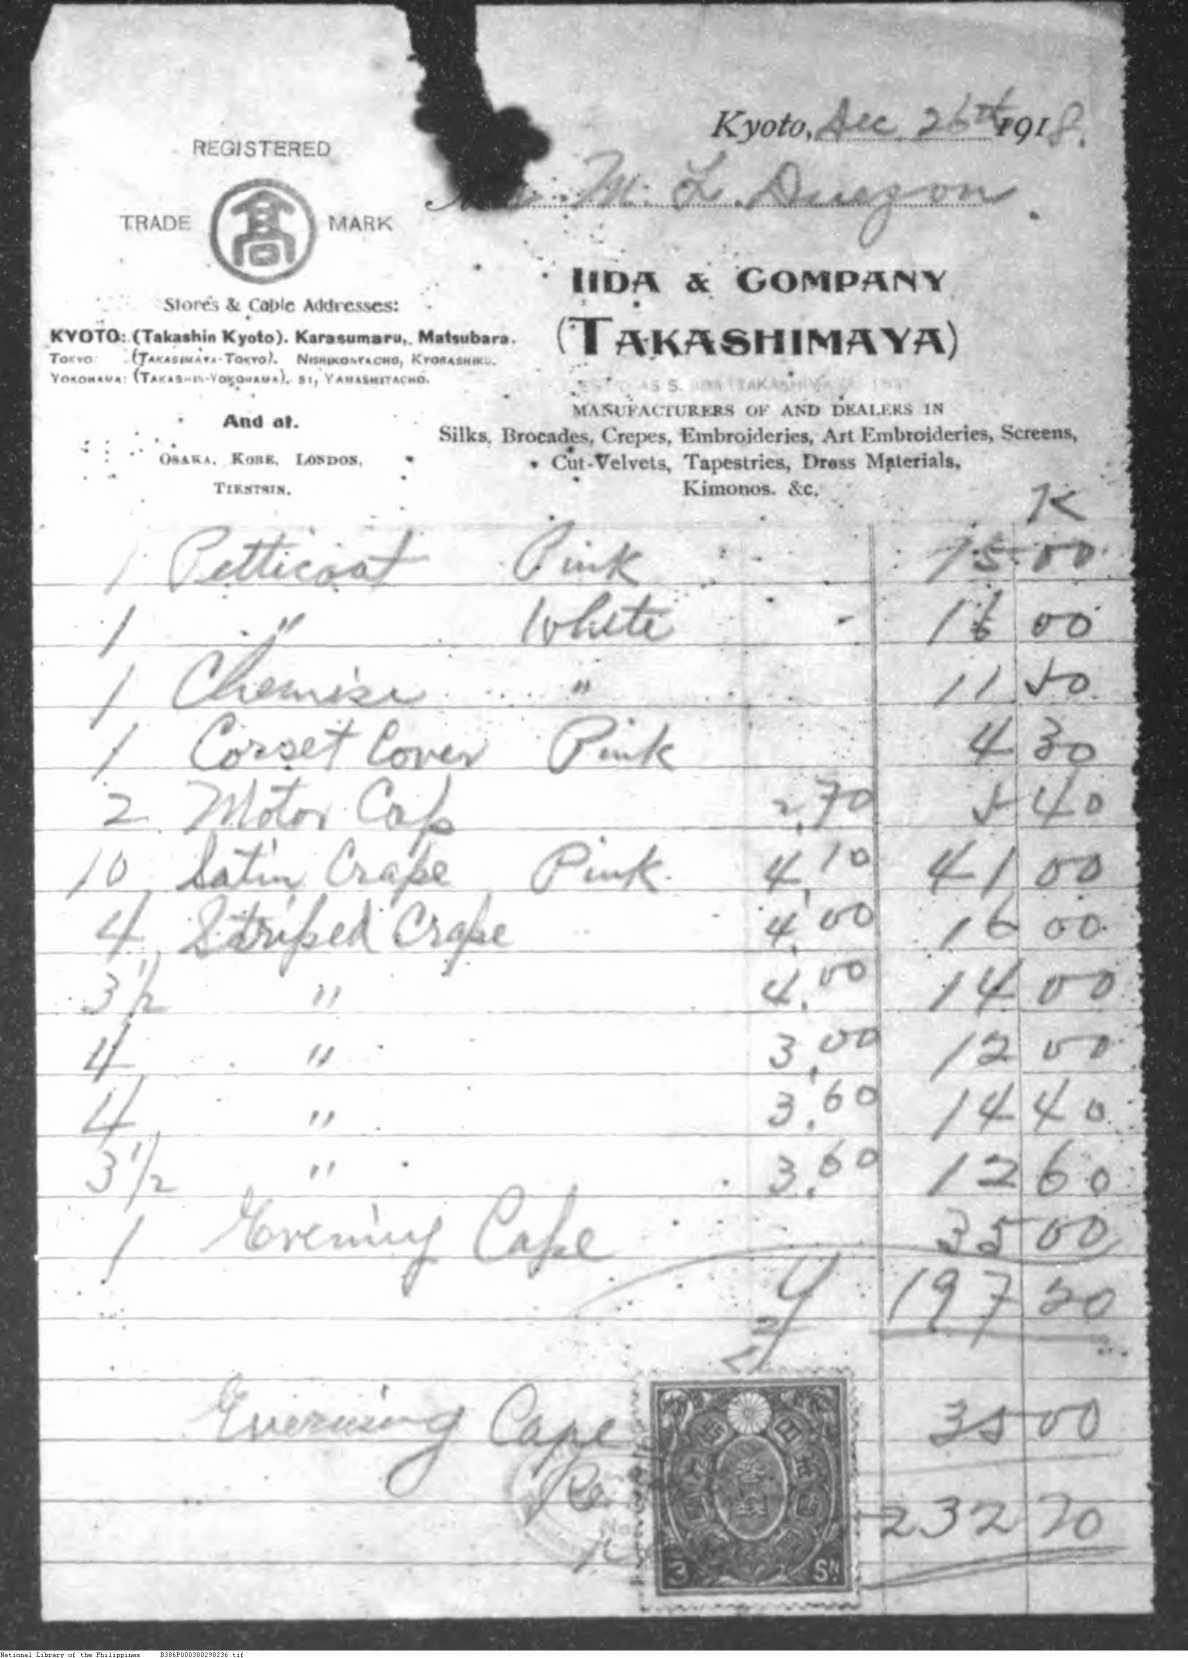 Kyoto, Dec 26th 1918.
M. L. Quezon
REGISTERED
TRADE 髙 MARK
Stores & Cable Addresses:
KYOTO: (Takashin Kyoto). Karasumaru, Matsubara.
TOKYO: (TAKASIMAYA-TOKYO). NISHIKONYACHO, KYOBASHIKU.
YOKOHAMA: (TAKASHIN-YOKOHAMA). 81, YAMASHITACHO.
And at.
OSAKA, KOBE, LONDON,
TIENTSIN.
IIDA & COMPANY
(TAKASHIMAYA)
MANUFACTURERS OF AND DEALERS IN
Silks, Brocades, Crepes, Embroideries, Art Embroideries, Screens,
Cut-Velvets, Tapestries, Dress Materials,
Kimonos. &c.
K
1 Petticoat Pink 15 00
1 " White 16 00
1 Chemise " 11 50
1 Corset Cover Pink 4 30
2 Motor Cap 2,70 5 40
10 Satin Crape Pink 4,10 41 00
4 Striped Crape 4,00 16 00
3 1/2 " 4,00 14 00
4 " 3,00 12 00
4 " 3,60 14 40
3 1/2 " 3,60 12 60
1 Evening Cape 35 00
Y 197 20
Evening Cape 35 00
232 20
3 SN
National Library of the Philippines B386P000300290236.tif